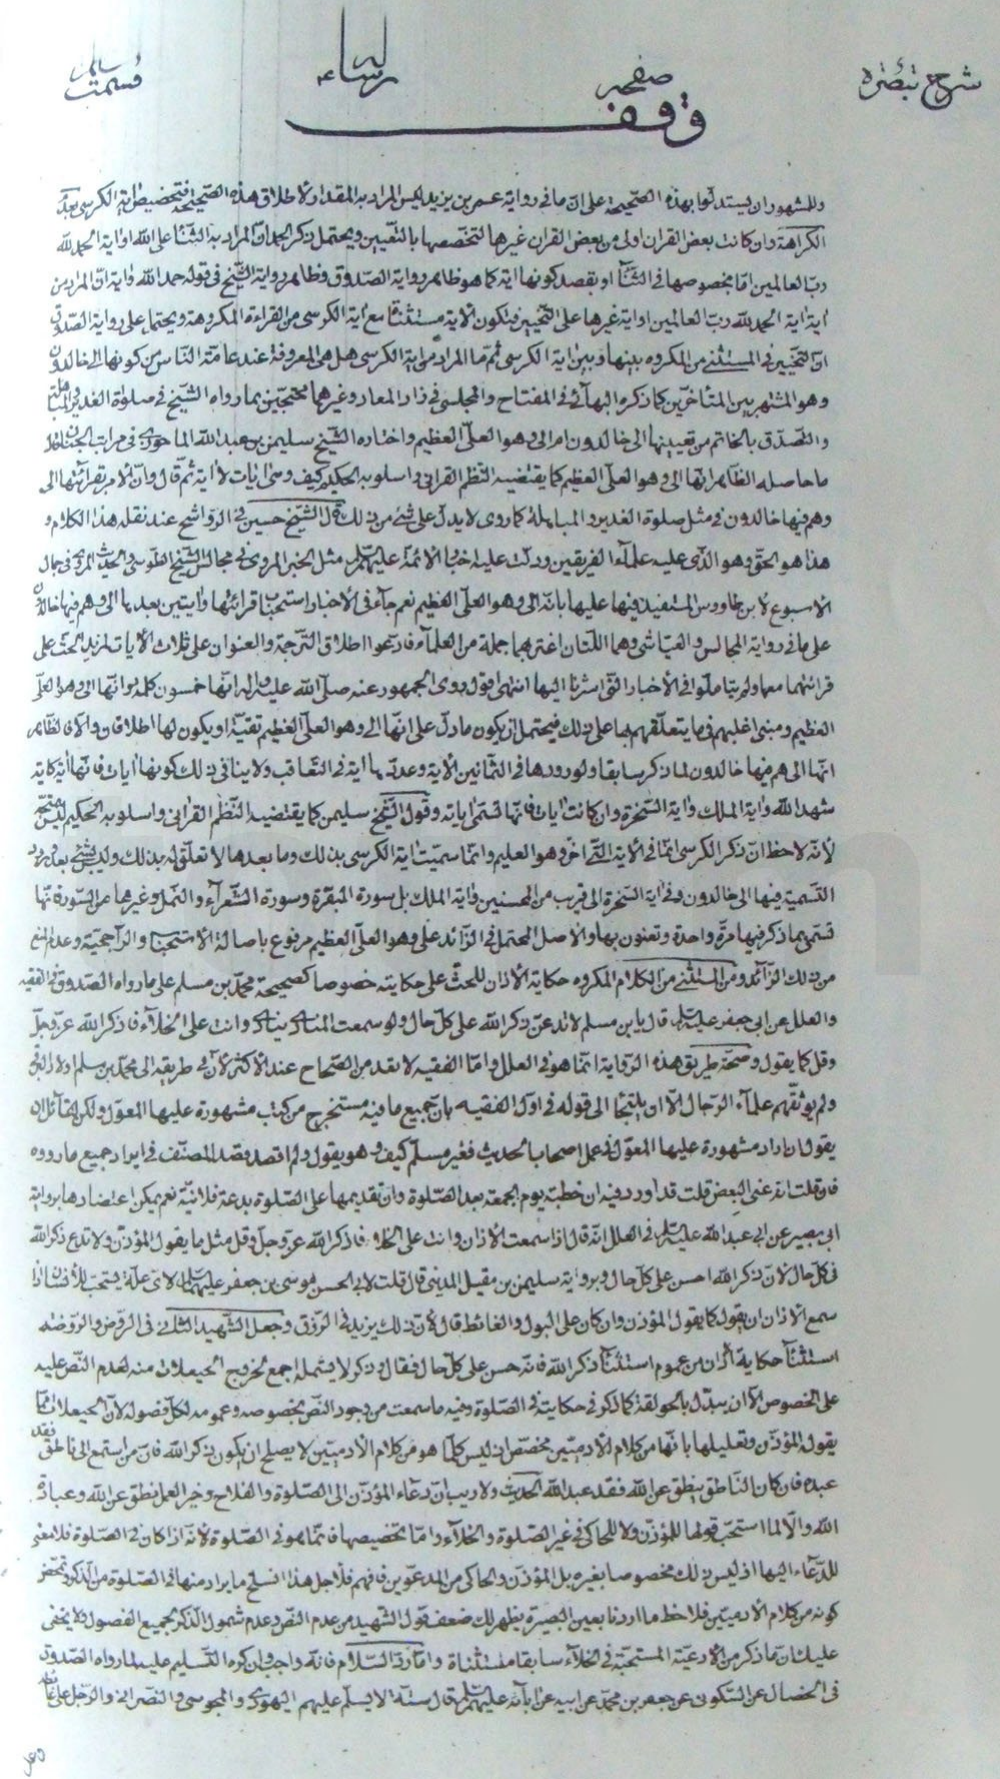 شرح تبصره صفحه رساله قسمت
وقف
وللمشهور ان يستدلوا بهذه الصحيحة على ان ما في رواية عمر بن يزيد ليس المراد به المقدار لاطلاق هذه الصحيحة فتخصيص اية الكرسى بعدم
الكراهة وان كانت بعض القران اولى من بعض القران غيرها لتخصصها بالتعيين ويحتمل ذكر الحمد ان المراد به الثناء على الله او اية الحمد لله
رب العالمين اما بخصوصها في الثناء او بقصد كونها اية كما هو ظاهر رواية الصدوق وظاهر رواية الشيخ في قوله حمد الله واية ان المراد من
اية اية الحمد لله رب العالمين او اية غيرها على التخيير فتكون الاية مستثناة مع اية الكرسى من القراءة المكروهة ويحتمل على رواية الصدوق
ان التخيير في المستثنى من المكروه بينها وبين اية الكرسى ثم ما المراد من اية الكرسى هل هى المعروفة عند عامة الناس من كونها الى خالدون
وهو المشتهر بين المتأخرين كما ذكره البهائى في المفتاح والمجلسى في زاد المعاد وغيرهما محتجين بما رواه الشيخ في صلوة الغدير والمباهلة
والتصدق بالخاتم من تعيينها الى خالدون ام الى وهو العلى العظيم واختاره الشيخ سليمن بن عبد الله الماحوزى في مراتب الجنان
ما حاصله الظاهر انها الى وهو العلى العظيم كما يقتضيه النظم القرانى واسلوبه الحكيم كيف وهى ايات لا اية ثم قال وان الامر بقرائتها الى
وهم فيها خالدون في مثل صلوة الغدير والمباهلة كما روى لا يدل على شئ من ذلك قال الشيخ حسين في الرواشح عند نقله هذا الكلام و
هذا هو الحق وهو الذى عليه علماء الفريقين ودلت عليه اخبار الائمة عليهم السلام مثل الخبر المروى في مجالس الشيخ الطوسى والحديث المروى في جمال
الاسبوع لابن طاووس المستفيد فيها عليها بانه الى وهو العلى العظيم نعم جاء في الاخبار استحباب قرائتها وايتين بعدها الى وهم فيها خالدون
على ما في رواية المجالس والعياشى وهما اللتان اغتر بهما جملة من العلماء فادعوا اطلاق الترجمة والعنوان على ثلاث الايات لمزيد الحث على
قرائتهما معها ولم يتأملوا في الاخبار التى اشرنا اليها انتهى اقول روى الجمهور عنه صلى الله عليه واله انها خمسون كلمة وانها الى وهو العلى
العظيم ومبنى اغلبهم في ما يتعلقهم بها على ذلك فيحتمل ان يكون ما دل على انها الى وهو العلى العظيم تقية او يكون لها اطلاقان والا فالظاهر
انها الى هم فيها خالدون لما ذكر سابقا ولورودها في الثمانين الاية وعدها اية في التعاقب ولا ينافى ذلك كونها ايات فانها اية كاية
شهد الله واية الملك واية السخرة وان كانت ايات فانها تسمى اياته وقول الشيخ سليمن كما يقتضيه النظم القرانى واسلوبه الحكيم ليس بمتجه
لانه لاحظ ان ذكر الكرسى انما في الاية التى اخرها وهو العليم وانما سميت اية الكرسى بذلك وما بعدها لا تعلق له بذلك وليس بشئ بعد ورود
التسمية فيها الى خالدون وفي اية السخرة الى قريب من المحسنين واية الملك بل سورة البقرة وسورة الشعراء والنمل وغيرها من السور فانها
تسمى بما ذكر فيها مرة واحدة وتعنون بها والاصل المحتمل في الزائد على وهو العلى العظيم مرفوع باصالة الاستحباب والراجحية وعدم المنع
من ذلك الزائد ومن المستثنى من الكلام المكروه حكاية الاذان للحث على حكايته خصوصا كصحيحة محمد بن مسلم على ما رواه الصدوق في الفقيه
والعلل عن ابى جعفر عليه السلام قال يا بن مسلم لا تدعن ذكر الله على كل حال ولو سمعت المنادى ينادى وانت على الخلاء فاذكر الله عز وجل
وقل كما يقول وصحة طريق هذه الرواية انما هو في العلل واما الفقيه لا تعد من الصحاح عند الاكثر لان في طريقه الى محمد بن مسلم ولاد البرقى
ولم يوثقهم علماء الرجال الا ان يلتجأ الى قوله في اول الفقيه بان جميع ما فيه مستخرج من كتب مشهورة عليها المعول ولكن لقائل ان
يقول ان اراد مشهورة عليها المعول في عمل اصحاب الحديث فغير مسلم كيف وهو يقول ولم اقصد قصد المصنف في ايراد جميع ما رووه
فان قلت انه عنى البعض قلت قد اورد فيه ان خطبة يوم الجمعة بعد الصلوة وان تقديمها على الصلوة بدعة فلانية نعم يمكن اعتضادها برواية
ابى بصير عن ابى عبد الله عليه السلام في العلل انه قال اذا سمعت الاذان وانت على الخلاء فاذكر الله عز وجل وقل مثل ما يقول المؤذن ولا تدع ذكر الله
في كل حال لان ذكر الله احسن على كل حال وبرواية سليمن بن مقبل المدينى قال قلت لابى الحسن موسى بن جعفر عليهما السلام لاى علة يستحب للانسان اذا
سمع الاذان ان يقول كما يقول المؤذن وان كان على البول والغائط قال لان ذلك يزيد في الرزق وجعل الشهيد الثانى في الروض والروضة
استثناء حكاية الاذان من عموم استثناء ذكر الله فانه حسن على كل حال فقال وذكر لا يشمله اجمع لخروج الحيعلات منه لعدم النص عليه
على الخصوص الا ان يبدل بالحولقة كما ذكر في حكايته في الصلوة وفيه ما سمعت من وجود النص بخصوصه وعمومه لكل فصوله لان الحيعلات مما
يقول المؤذن وتعليلها بانها من كلام الادميين مخصص اذ ليس كلما هو من كلام الادميين لا يصلح ان يكون ذكر الله فان من استمع الى ناطق فقد
عبده فان كان الناطق ينطق عن الله فقد عبد الله الحديث ولا ريب ان دعاء المؤذن الى الصلوة والفلاح وخير العمل نطق عن الله وعبادة
الله والا لما استحب قولها للمؤذن ولا للحاكى في غير الصلوة والخلاء واما تخصيصها فانما هو في الصلوة لانه اذا كان في الصلوة فلا معنى
للدعاء اليها اذ ليس ذلك مخصوصا بغيره بل المؤذن والحاكى من المدعوين فافهم فلاجل هذا انسلخ ما يراد منها في الصلوة من الذكر وتمحض
كونه من كلام الادميين فلاحظ ما اردنا بعين البصيرة يظهر لك ضعف قول الشهيد من عدم النص وعدم شمول الذكر لجميع الفصول ولا يخفى
عليك ان ما ذكر من الادعية المستحبة في الخلاء سابقا مستثناة واما رد السلام فانه واجب وان كره التسليم عليه لما رواه الصدوق
في الخصال عن السكونى عن جعفر بن محمد عن ابيه عن ابائه عليهم السلام قال ستة لا يسلم عليهم اليهودى والمجوسى والنصرانى والرجل على غائطه